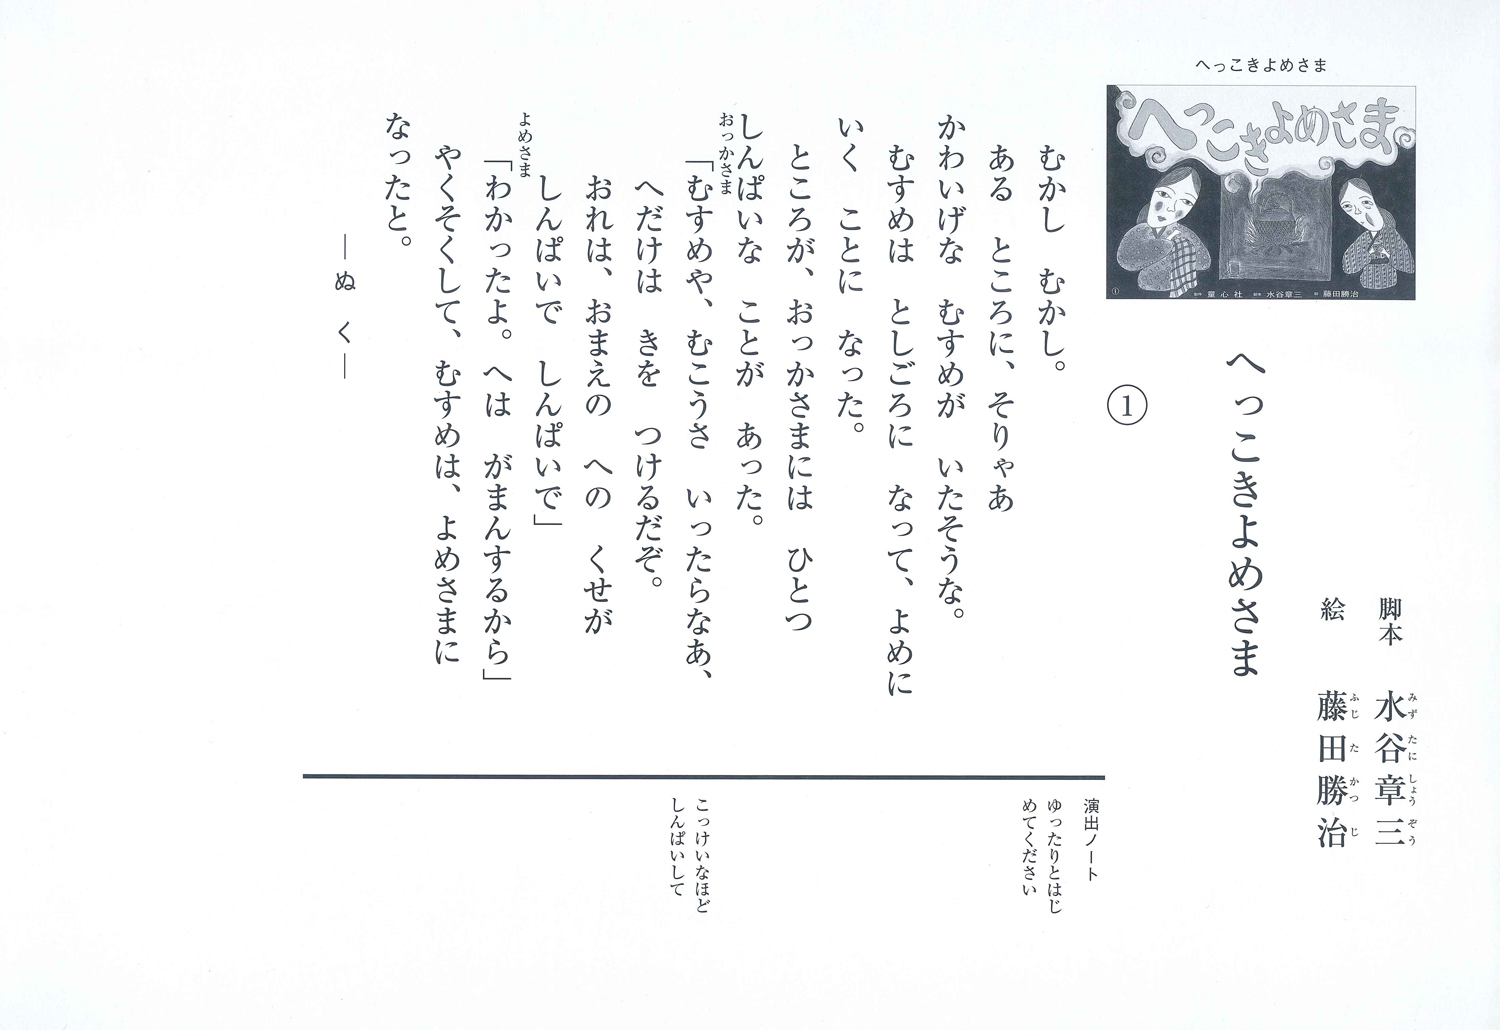 へっこきよめさま
へっこきよめさま
① 童心社 脚本 水谷章三 絵 藤田勝治
脚本 水谷章三
みずたにしょうぞう
絵 藤田勝治
ふじたかつじ
へっこきよめさま
①
むかし むかし。
ある ところに、そりゃあ
かわいげな むすめが いたそうな。
むすめは としごろに なって、よめに
いく ことに なった。
ところが、おっかさまには ひとつ
しんぱいな ことが あった。
おっかさま
「むすめや、むこうさ いったらなあ、
へだけは きを つけるだぞ。
おれは、おまえの への くせが
しんぱいで しんぱいで」
よめさま
「わかったよ。へは がまんするから」
やくそくして、むすめは、よめさまに
なったと。
―ぬ く―
演出ノート
ゆったりとはじ
めてください
こっけいなほど
しんぱいして